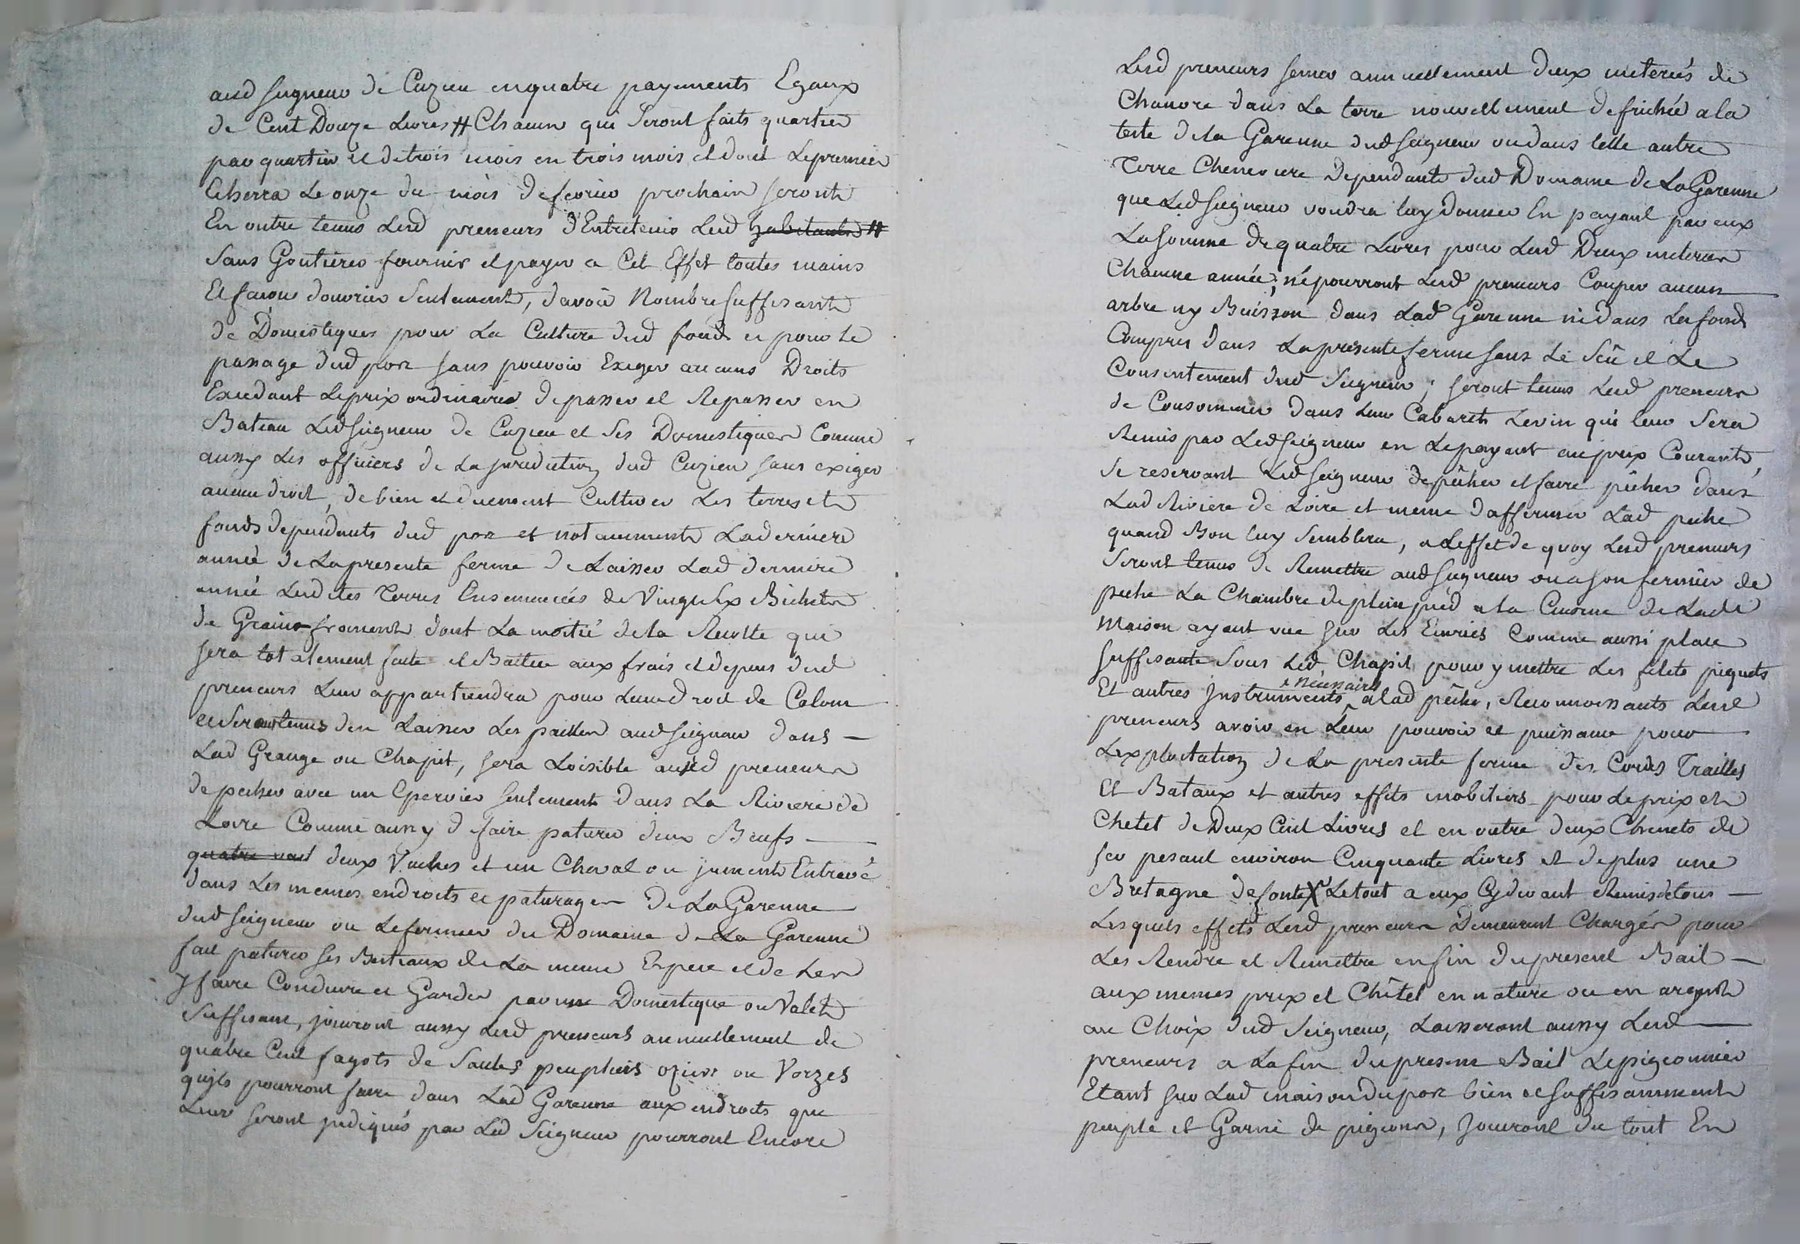 aud seigneur de Cuzieu en quatre payements Egaux
de Cent Douze Livres # Chacun qui seront faits quartier
par quartier et de trois mois en trois mois et dont le premier
Echerra Le onze du mois de fevrier prochain seront
En outre tenus Lesd preneurs d'Entretenir Lesd habitants #
sans Goutieres fournir et payer a Cet Effet toutes mains
Et facon douvrier seulement, davoir Nombre suffisant
de Domestiques pour La Culture dud fonds et pour le
passage dud por sans pouvoir Exiger aucuns Droits
Excedant Le prix ordinaire de passer et Repasser en
Bateau Led seigneur de Cuzieu et ses Domestiques Comme
aussy Les officiers de La jurediction dud Cuzieu sans exiger
aucun droit, de bien et duement Cultiver Les terres et
fonds dependants dud por et notamment La derniere
année de La presente ferme de Laisser Lad derniere
année Lesdites Terres Ensemencées de Vingt six Bichets
de Grains froment dont La moitié de la Recolte qui
sera totalement faite et Battue aux frais et depens desd
preneurs Leur appartiendra pour Leur droit de Colon
et seront tenus den Laisser Les pailles aud seigneur dans
Lad Grange ou Chapit, sera Loisible auxd preneurs
de pecher avec un Epervier seulement dans La Riviere de
Loire Comme aussy de faire paturer deux Bœufs
quatre deux Vaches et un Cheval ou jument Entravé
dans Les memes endroits et paturages de La Garenne
dud seigneur ou Le fermier du Domaine de La Garenne
fait paturer ses Bestiaux de La meme Espece et de Les
y faire Conduire et Garder par une Domestique ou Valet
suffisant, jouiront aussy Lesd preneurs annuellement de
quatre Cent fagots de saules peupliers oziers ou Vorzes
quils pourront faire dans Lad Garenne aux endroits que
Leur seront jndiqués par Led Seigneur pourront Encore
Lesd preneurs semer annuellement deux meterées de
Chanvre dans La terre nouvellement defrichée a la
teste de la Garenne dud seigneur ou dans telle autre
Terre Cheneviere dependante dud Domaine de La Garenne
que Led seigneur voudra luy donner En payant par eux
La somme de quatre Livres pour Lesd Deux meterées
Chacune année; ne pourront Lesd preneurs Couper aucun
arbre ny Buisson dans Lad Garenne ni dans Les fonds
Compris dans La presente ferme sans Le Scû et Le
Consentement dud Seigneur; seront tenus Lesd preneurs
de Consommer dans Leur Cabaret Le vin qui leur sera
Remis par Led seigneur en Le payant au prix Courant,
se reservant Led seigneur de pêcher et faire pêcher dans
Lad Riviere de Loire et meme daffermer Lad peche
quand Bon luy semblera, a Leffet de quoy Lesd preneurs
seront tenus de Remettre aud seigneur ou a son fermier de
peche La Chambre de plein pied a la Cuisine de Lade
Maison ayant vue sur Les Ecuries Comme aussi place
suffisante sous Led Chapit pour y mettre Les filets piquets
Et autres jnstruments necessaires a lad pêche, Reconnoissants Lesd
preneurs avoir en Leur pouvoir et puissance pour
Lexploitation de La presente ferme des Cordes Trailles
Et Bataux et autres effets mobiliers pour le prix et
Chetel de Deux Cent Livres et en outre deux Chenets de
fer pesant environ Cinquante Livres et de plus une
Bretagne de fonte X Le tout a eux Cydevant Remis de tous
Lesquels effets Lesd preneurs Demeurent Chargés pour
Les Rendre et Remettre en fin du present Bail
aux memes prix et Chêtel en nature ou en argent
au Choix dud Seigneur, Laisseront aussy Lesd
preneurs a La fin du present Bail Le pigeonnier
Etant sur Lad maison du por bien et suffisamment
peuplé et Garni de pigeons, Jouiront du tout En